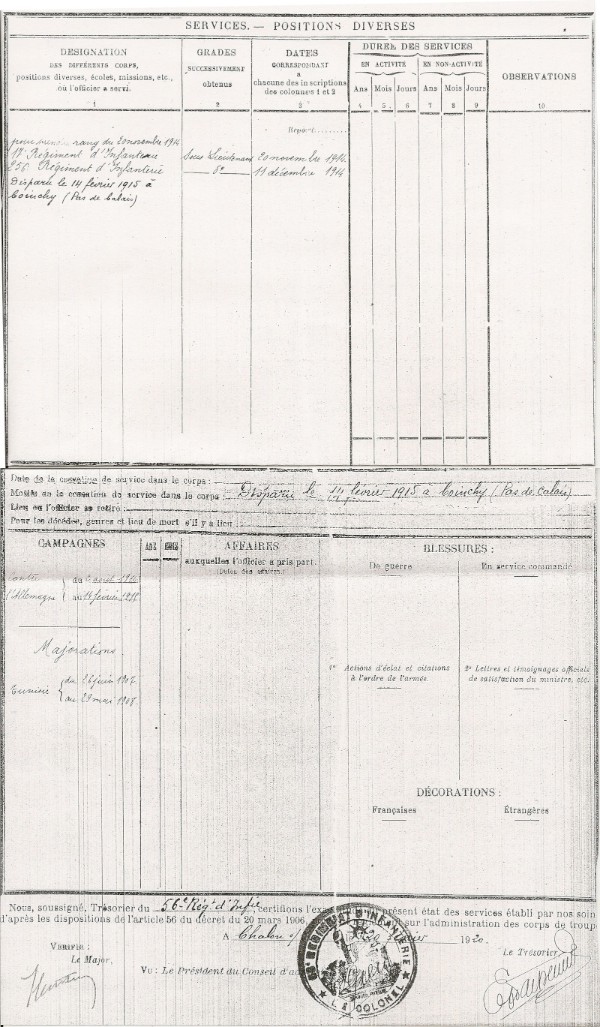 SERVICES. — POSITIONS DIVERSES
DÉSIGNATION
DES DIFFÉRENTS CORPS,
positions diverses, écoles, missions, etc.,
où l'officier a servi.
1
GRADES
SUCCESSIVEMENT
obtenus
2
DATES
CORRESPONDANT
à
chacune des inscriptions
des colonnes 1 et 2
3
DURÉE DES SERVICES
EN ACTIVITÉ
EN NON-ACTIVITÉ
Ans Mois Jours Ans Mois Jours
4 5 6 7 8 9
OBSERVATIONS
10
Report........
rang du 20 novembre 1914
17e Régiment d'Infanterie Sous Lieutenant 20 novembre 1914
256 Régiment d'Infanterie — do — 11 décembre 1914
Disparu le 14 février 1915 à
Cuinchy (Pas de Calais)
Date de la cessation de service dans le corps :
Motifs de la cessation de service dans le corps : Disparu le 14 février 1915 à Cuinchy (Pas de Calais)
Lieu où l'officier se retire :
Pour les décédés, genres et lieu de mort s'il y a lieu :
CAMPAGNES
AFFAIRES
auxquelles l'officier a pris part.
(Dates des affaires.)
BLESSURES :
De guerre
En service commandé
l'Allemagne
Majorations
Tunisie du 26 juin 1907
au 29 mai 1908
1° Actions d'éclat et citations
à l'ordre de l'armée
2° Lettres et témoignages officiels
de satisfaction du ministre, etc.
DÉCORATIONS :
Françaises
Étrangères
Nous, soussigné, Trésorier du 56e Régt d'Infie, certifions présent état des services établi par nos soins
d'après les dispositions de l'article 56 du décret du 20 mars 1906, sur l'administration des corps de troupe
A Chalon 1920.
VÉRIFIÉ :
Le Major.
Vu : Le Président du Conseil d'ad
RÉGIMENT D'INFANTERIE
★ LE COLONEL ★
Le Trésorier,